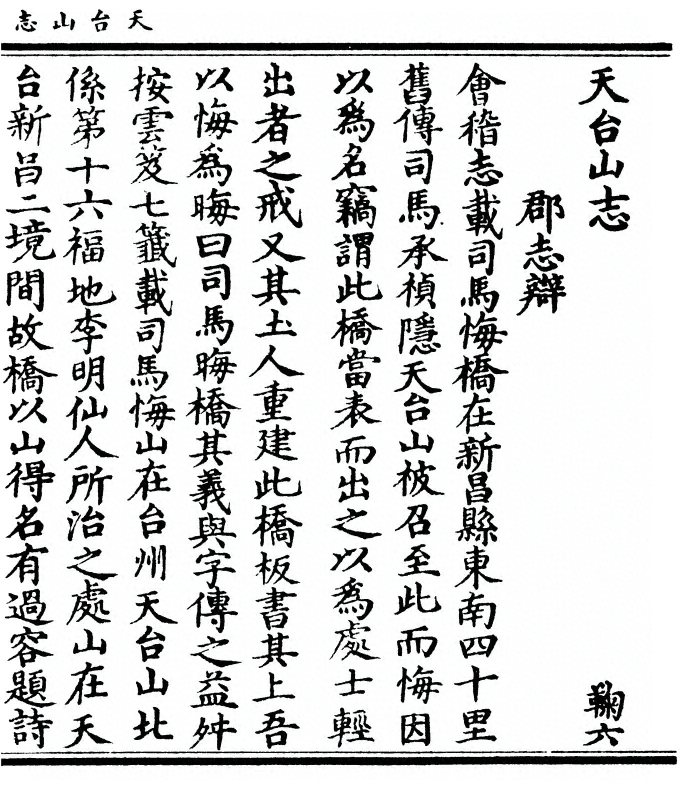 天台山志
天台山志 鞠六
郡志辯
會稽志載司馬悔橋在新昌縣東南四十里
舊傳司馬承禎隱天台山被召至此而悔因
以爲名竊謂此橋當表而出之以爲處士輕
出者之戒又其土人重建此橋板書其上吾
以悔爲晦曰司馬晦橋其義與字傳之益舛
按雲笈七籤載司馬悔山在台州天台山北
係第十六福地李明仙人所治之處山在天
台新昌二境間故橋以山得名有過容題詩